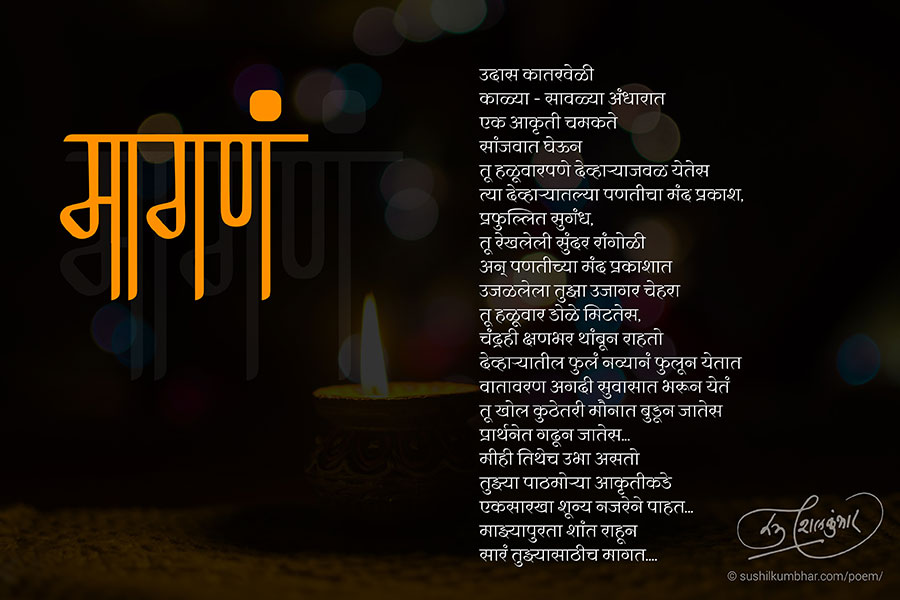 मागणं
उदास कातरवेळी
काळ्या - सावळ्या अंधारात
एक आकृती चमकते
सांजवात घेऊन
तू हळूवारपणे देव्हाऱ्याजवळ येतेस
त्या देव्हाऱ्यातल्या पणतीचा मंद प्रकाश,
प्रफुल्लित सुगंध,
तू रेखलेली सुंदर रांगोळी
अन् पणतीच्या मंद प्रकाशात
उजळलेला तुझा उजागर चेहरा
तू हळूवार डोळे मिटतेस,
चंद्रही क्षणभर थांबून राहतो
देव्हाऱ्यातील फुलं नव्यानं फुलून येतात
वातावरण अगदी सुवासात भरून येतं
तू खोल कुठेतरी मौनात बुडून जातेस
प्रार्थनेत गढून जातेस...
मीही तिथेच उभा असतो
तुझ्या पाठमोऱ्या आकृतीकडे
एकसारखा शून्य नजरेने पाहत...
माझ्यापुरता शांत राहून
सारं तुझ्यासाठीच मागत....
© sushilkumbhar.com/poem/